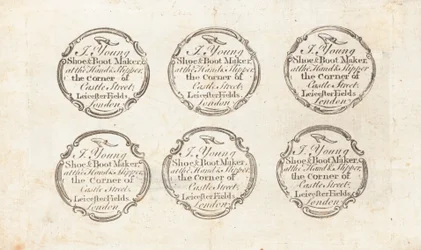 J. Young
Shoe & Boot Maker,
at the Hand & Slipper,
the Corner of
Castle Street,
Leicester Fields,
London
J. Young
Shoe & Boot Maker,
at the Hand & Slipper,
the Corner of
Castle Street,
Leicester Fields,
London
J. Young
Shoe & Boot Maker,
at the Hand & Slipper,
the Corner of
Castle Street,
Leicester Fields,
London
J. Young
Shoe & Boot Maker,
at the Hand & Slipper,
the Corner of
Castle Street,
Leicester Fields,
London
J. Young
Shoe & Boot Maker,
at the Hand & Slipper,
the Corner of
Castle Street,
Leicester Fields,
London
J. Young
Shoe & Boot Maker,
at the Hand & Slipper,
the Corner of
Castle Street,
Leicester Fields,
London